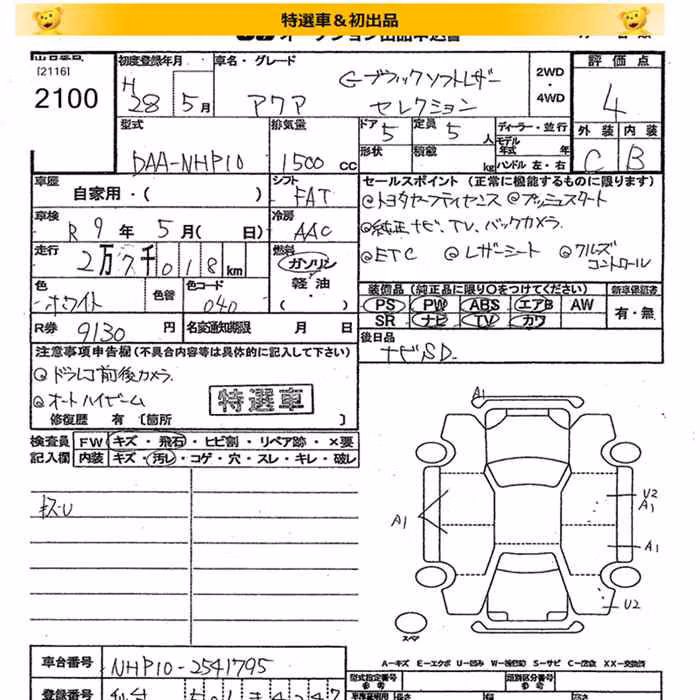 特選車＆初出品
[2116]
2100
初度登録年月
H28年5月
車名・グレード
アクア
Gブラックソフトレザー
セレクション
2WD
・
4WD
評価点
4
外装 内装
C B
型式
DAA-NHP10
排気量
1500 CC
ドア
5
定員
5 人
形状
積載
kg
ディーラー・並行
モデル
年式 年
ハンドル 左・右
車歴
自家用・( )
シフト
FAT
セールスポイント (正常に機能するものに限ります)
◎トヨタセーフティセンス ◎プッシュスタート
◎純正ナビ、TV、バックカメラ
◎ETC ◎レザーシート ◎クルーズ
コントロール
車検
R9年5月( 日)
冷房
AAC
走行
2万7千018km
燃料
ガソリン
軽油
色
ホワイト
色替
色コード
040
装備品 (純正品に限り○をつけてください)
PS PW ABS エアB AW
SR ナビ TV カワ
新車保証書
有・無
R券
9130円
名変通知期限 月 日
後日品
ナビSD.
注意事項申告欄(不具合内容等は具体的に記入して下さい)
◎ドラレコ前後カメラ
◎オートハイビーム
特選車
修復歴 有 〔箇所 〕
検査員 FW キズ・飛石・ヒビ割・リペア跡・×要
記入欄 内装 キズ・汚レ・コゲ・穴・スレ・キレ・破レ
キズU
A1
A1
U2
A1
A1
U2
スペア
A-キズ E-エクボ U-凹み W-補修跡 S-サビ C-腐食 XX-交換済
車台番号
NHP10-2541795
型式指定番号
類別区分番号
登録番号
仙台